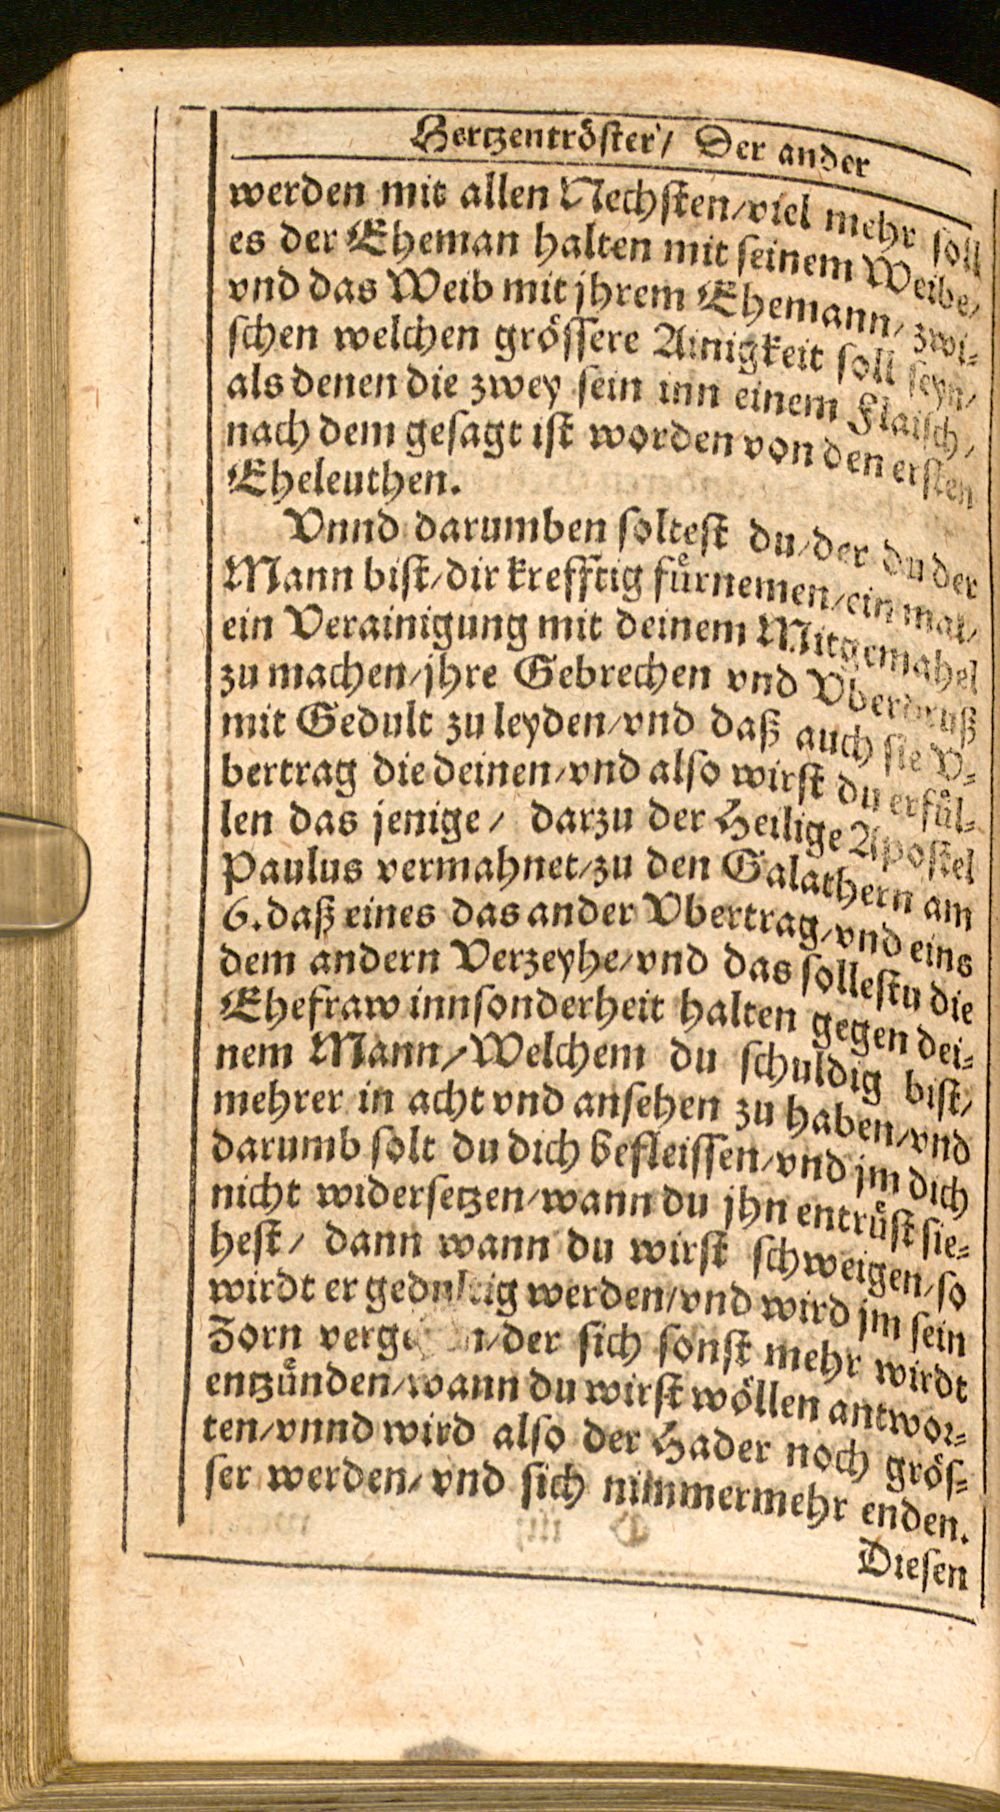 Hertzentröster / Der ander
werden mit allen Nechsten / viel mehr soll
es der Eheman halten mit seinem Weibe /
vnd das Weib mit jhrem Ehemann / zwi-
schen welchen grössere Ainigkeit soll seyn /
als denen die zwey sein inn einem Flaisch /
nach dem gesagt ist worden von den ersten
Eheleuthen.
Vnnd darumben soltest du / der du der
Mann bist / dir krefftig fürnemen / ein mal /
ein Verainigung mit deinem Mitgemahel
zu machen / jhre Gebrechen vnd Vberdruß
mit Gedult zu leyden / vnd daß auch sie V-
bertrag die deinen / vnd also wirst du erfül-
len das jenige / darzu der Heilige Apostel
Paulus vermahnet / zu den Galathern am
6. daß eines das ander Vbertrag / vnd eins
dem andern Verzeyhe / vnd das sollestu die
Ehefraw innsonderheit halten gegen dei-
nem Mann / Welchem du schuldig bist /
mehrer in acht vnd ansehen zu haben / vnd
darumb solt du dich befleissen / vnd jm dich
nicht widersetzen / wann du jhn entrüst sie-
hest / dann wann du wirst schweigen / so
wirdt er gedultig werden / vnd wird jm sein
Zorn / der sich sonst mehr wirdt
entzünden / wann du wirst wöllen antwor-
ten / vnnd wird also der Hader noch grös-
ser werden / vnd sich nimmermehr enden.
Diesen